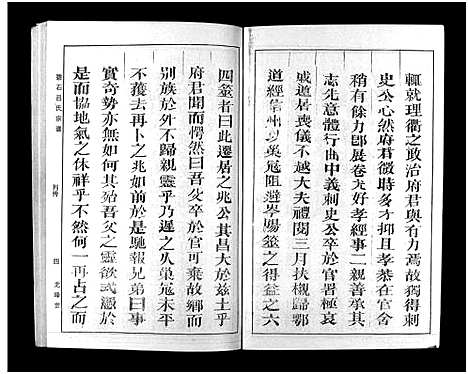 輒就理衢之政治府君與有力焉故獨得刺
史公心然府君微時多才抑且孝恭在官舍
稍有餘力卽展卷尤好孝經事二親善承其
志先意體行曲中義刺史公卒於官署極哀
戚遄居喪儀不越大夫禮閱三月扶櫬歸鄂
道經常州以吳寇阻避岑陽筮之得益之六
四筮者曰此遷居之兆公其昌大於茲土乎
府君聞而愕然曰吾父卒於官可棄故鄉而
別族於外不歸親靈乎乃遲之久巢寇未平
不獲去再卜之兆如前於是馳報兄弟曰事
實奇勢亦無如何其殆吾父之靈欲式憑於
是而協地氣之休祥乎不然何一再占之而
呂氏宗譜
四